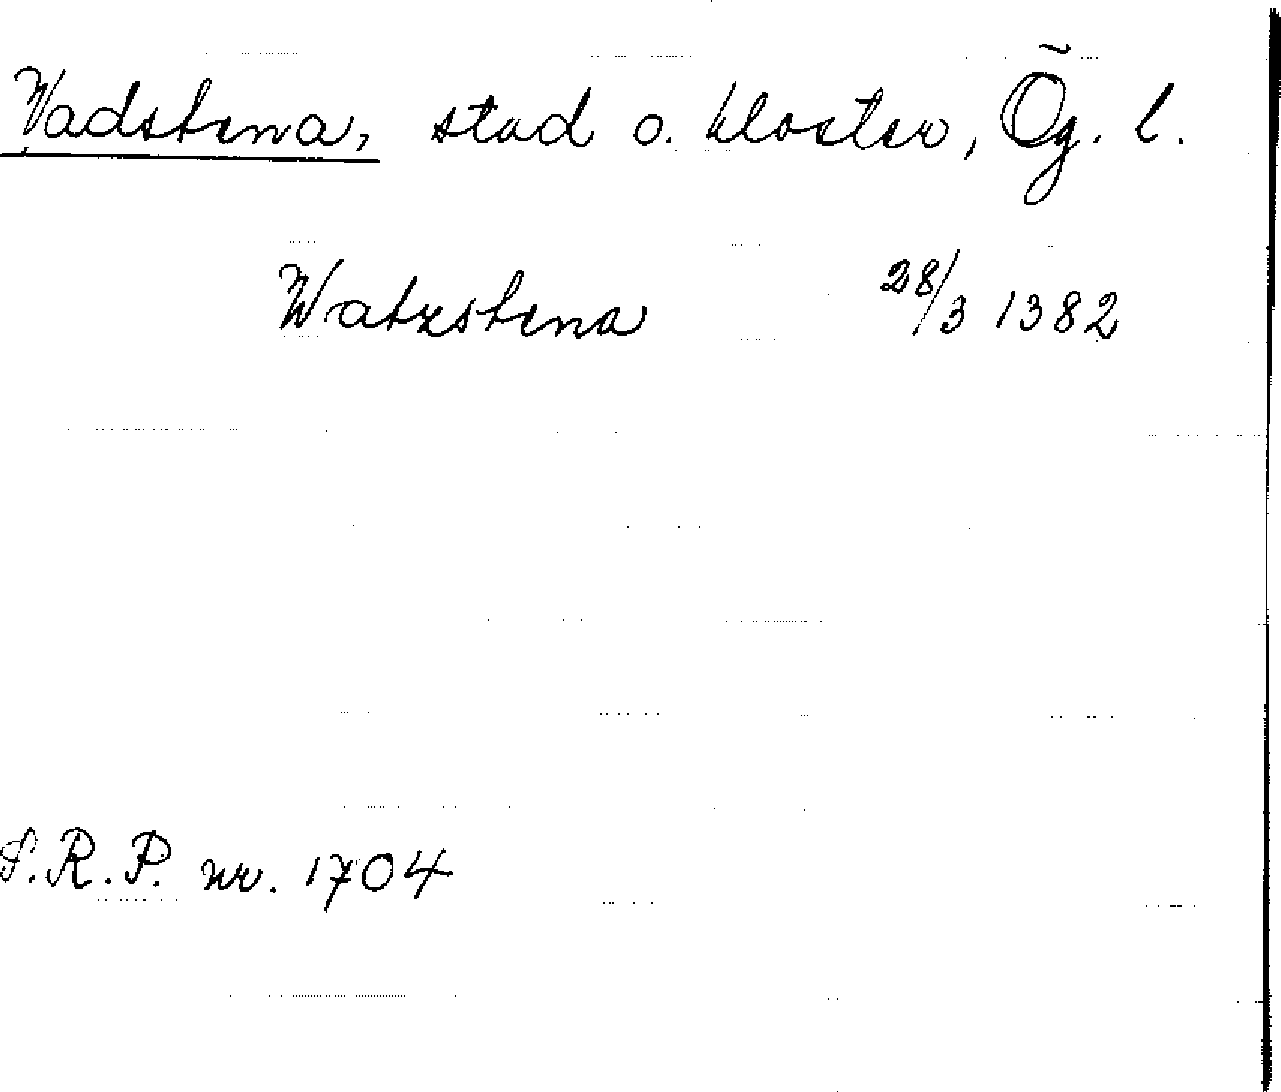 Vadstena, stad o. kloster, Ög. l.
Watzstena 28/3 1382
S.R.P. nr. 1704